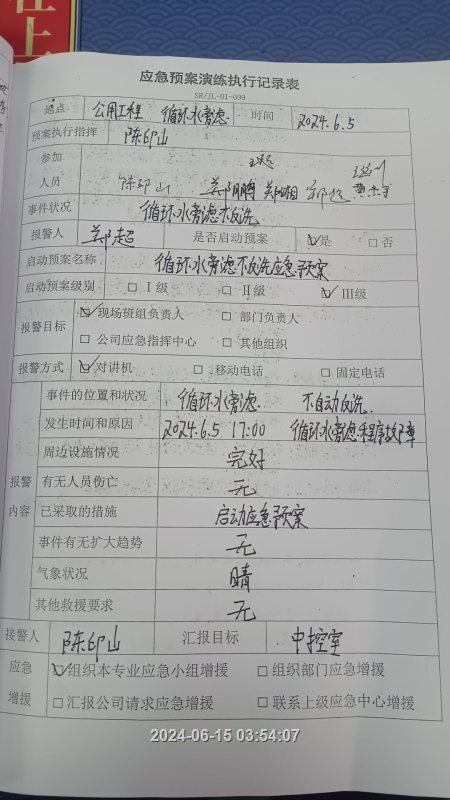 应急预案演练执行记录表
SR/JL-01-099
地点 公用工程 循环水旁滤 时间 2024.6.5
预案执行指挥 陈印山
参加
人员 陈印山
事件状况 循环水旁滤不反洗
报警人 郑超 是否启动预案 ☑是 □否
启动预案名称 循环水旁滤不反洗应急预案
启动预案级别 □ I级 □ II级 ☑ III级
报警目标 ☑现场班组负责人 □ 部门负责人
□ 公司应急指挥中心 □ 其他组织
报警方式 ☑对讲机 □ 移动电话 □ 固定电话
事件的位置和状况 循环水旁滤. 不自动反洗.
发生时间和原因 2024.6.5 17:00 循环水旁滤程序故障
周边设施情况 完好
报警 有无人员伤亡 无
内容 已采取的措施 启动应急预案
事件有无扩大趋势 无
气象状况 晴
其他救援要求 无
接警人 陈印山 汇报目标 中控室
应急 ☑组织本专业应急小组增援 □组织部门应急增援
增援 □汇报公司请求应急增援 □联系上级应急中心增援
2024-06-15 03:54:07